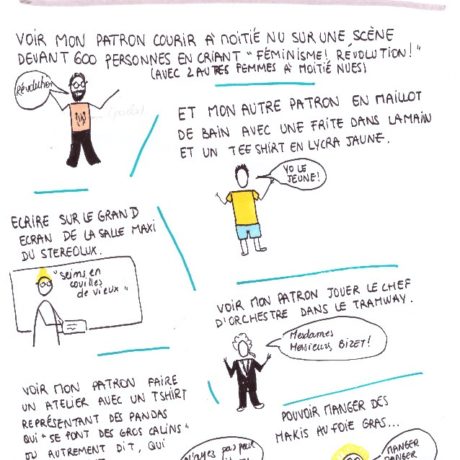 VOIR MON PATRON COURIR À MOITIÉ NU SUR UNE SCÈNE
DEVANT 600 PERSONNES EN CRIANT "FÉMINISME! RÉVOLUTION!"
(AVEC 2 AUTRES FEMMES À MOITIÉ NUES)
Révolution
ET MON AUTRE PATRON EN MAILLOT
DE BAIN AVEC UNE FRITE DANS LA MAIN
ET UN TEE SHIRT EN LYCRA JAUNE.
YO LE
JEUNE!
ECRIRE SUR LE GRAND
ECRAN DE LA SALLE MAXI
DU STEREOLUX.
"seins en
couilles
de vieux"
VOIR MON PATRON JOUER LE CHEF
D'ORCHESTRE DANS LE TRAMWAY.
Mesdames
Messieurs, BIZET!
VOIR MON PATRON FAIRE
UN ATELIER AVEC UN TSHIRT
REPRÉSENTANT DES PANDAS
QUI "SE FONT DES GROS CALINS"
OU AUTREMENT DIT, QUI
POUVOIR MANGER DES
MAKIS AU FOIE GRAS...
MANGER